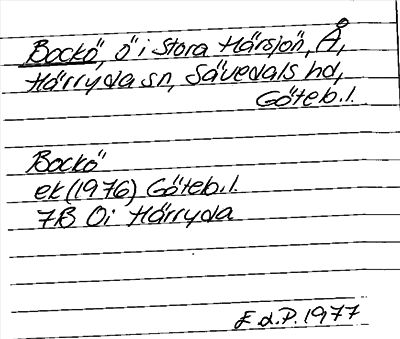 Bockö, ö i Stora Härsjön, Å,
Härryda sn, Sävedals hd,
Göteb.l.
Bockö
ek (1976) Göteb.l.
7B 0i Härryda
E d.P. 1977